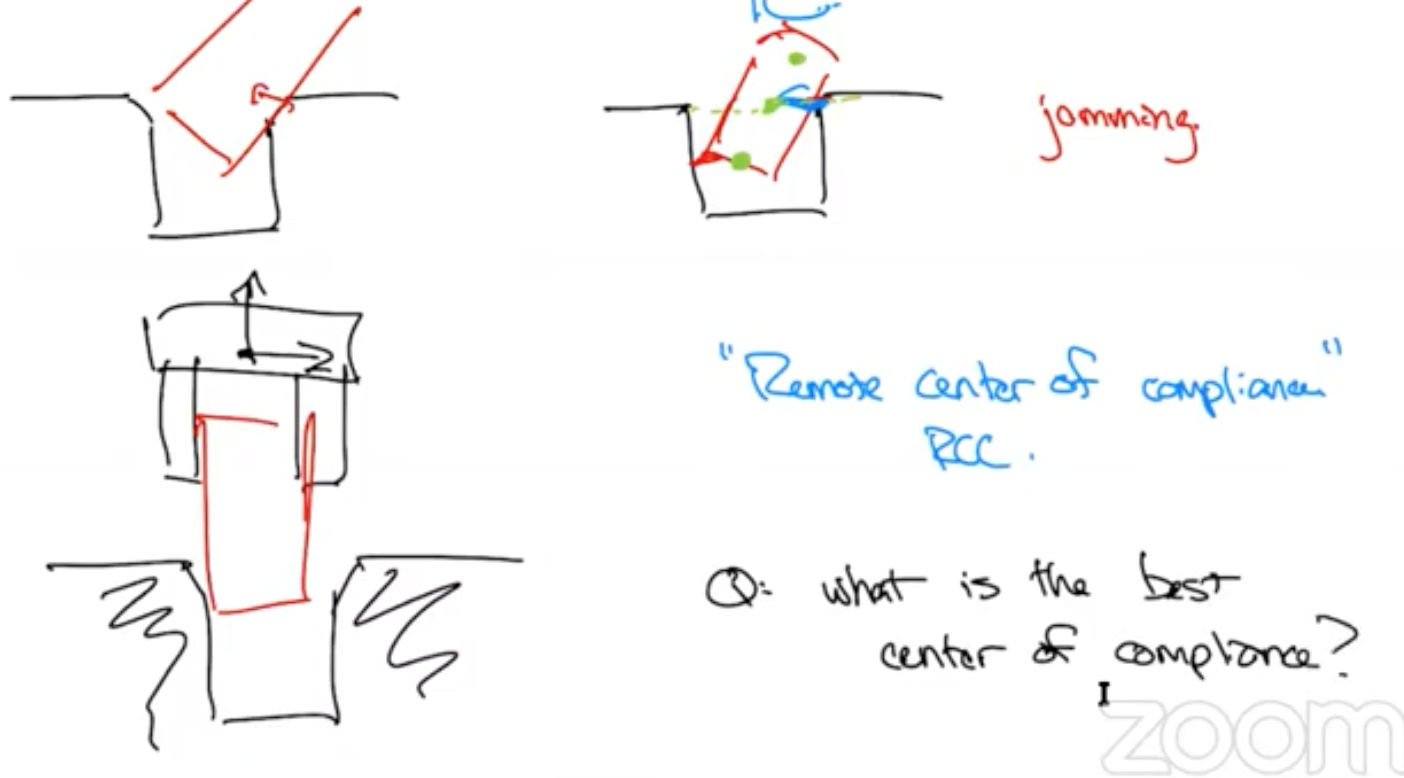 jamming.
"Remote center of compliance"
RCC.
Q: what is the best
center of compliance?
zoom